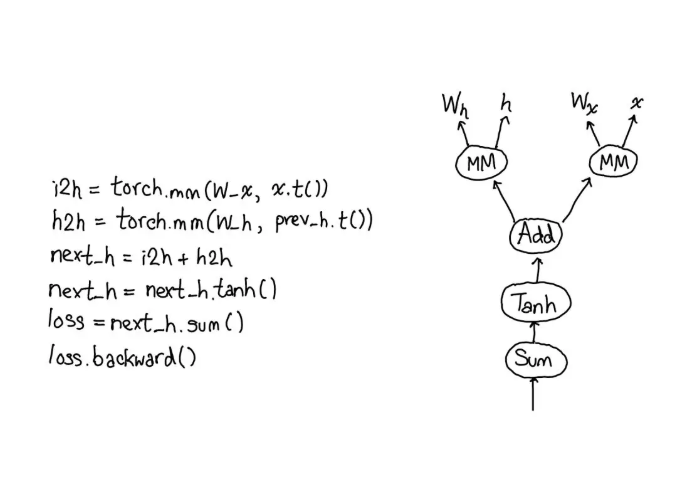 i2h = torch.mm(W_x, x.t())
h2h = torch.mm(W_h, prev_h.t())
next_h = i2h + h2h
next_h = next_h.tanh()
loss = next_h.sum()
loss.backward()
Wh h Wx x
MM MM
Add
Tanh
Sum